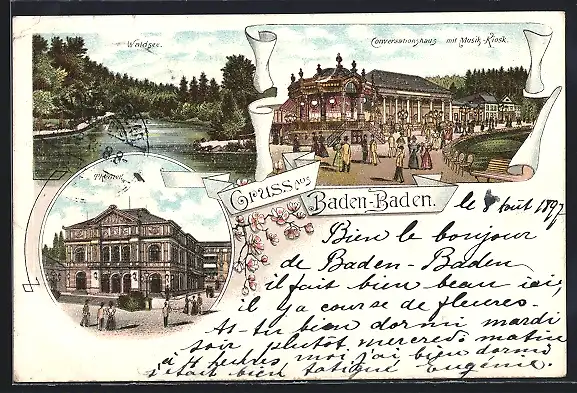 Waldsee.
Conversationshaus mit Musik-Kiosk.
Theater.
Gruss aus
Baden-Baden.
le 8 août 1897
Bien le bonjour
de Baden-Baden
il fait bien beau ici,
il y a course de fleures.
As-tu bien dormi mardi
soir plutôt mercredi matin
à 4 heures, moi j'ai bien dormi
j'étais bien fatigué Eugénie.